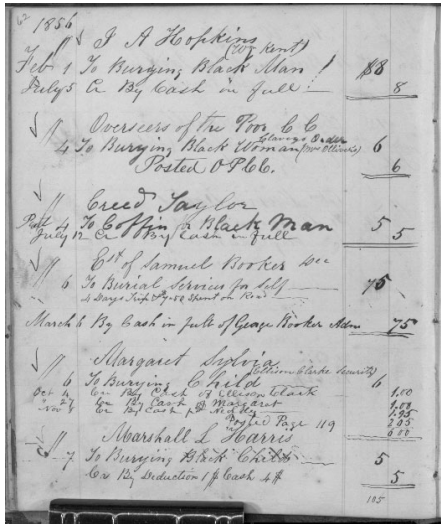 62 1856
" J A Hopkins
(Wm Kent)
Feb 1 To Burying Black Man $8
July 5 Cr By Cash in full 8
" Overseers of the Poor C C
4 To Burying Black Woman Order 6
Posted O P C C. 6
" Creed Taylor
4 To Coffin Black Man 5
July 12 Cr By Cash in full 5
" Est of Samuel Booker Dec
6 To Burial Services for Self 75
4 Days Trip on Road
March 6 By Cash in full of George Booker Adm 75
" Margaret Sylvia
(Ellison Clarke Security)
6 To Burying Child 6
Oct 4 Cr By Cash of Ellison Clark 1.00
" 27 Cr By Cash of Margaret 1.00
Nov 8 Cr By Cash 1.95
Posted Page 119 2.05
6.00
" Marshall L Harris
7 To Burying Black Child 5
Cr By Deduction 1 $ Cash 4 $ 5
105